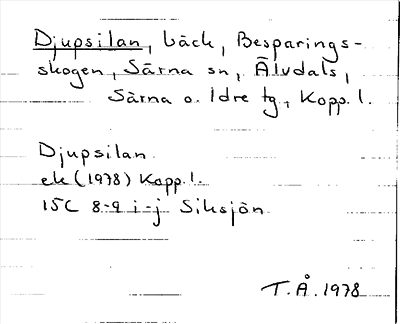 Djupsilan, bäck, Besparings-
skogen, Särna sn, Älvdals,
Särna o. Idre tg., Kopp. l.
Djupsilan
ek (1978) Kopp. l.
15C 8-9 i-j Siksjön
T.Å. 1978